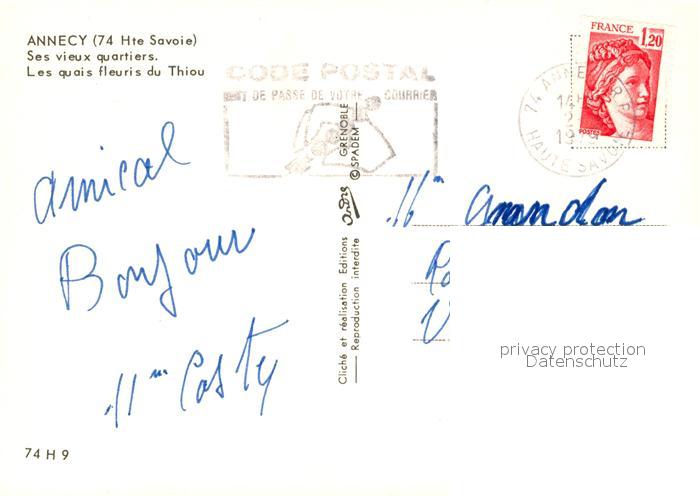 ANNECY (74 Hte Savoie)
Ses vieux quartiers.
Les quais fleuris du Thiou
CODE POSTAL
MOT DE PASSE DE VOTRE COURRIER
FRANCE 1,20
POSTES
74 ANNECY R.P.
14H
2
19
HAUTE SAVOIE
Amical
Bonjour
Mme Costy
74 H 9
Cliché et réalisation Editions André GRENOBLE
Reproduction interdite © SPADEM
Mme Anandon
privacy protection
Datenschutz